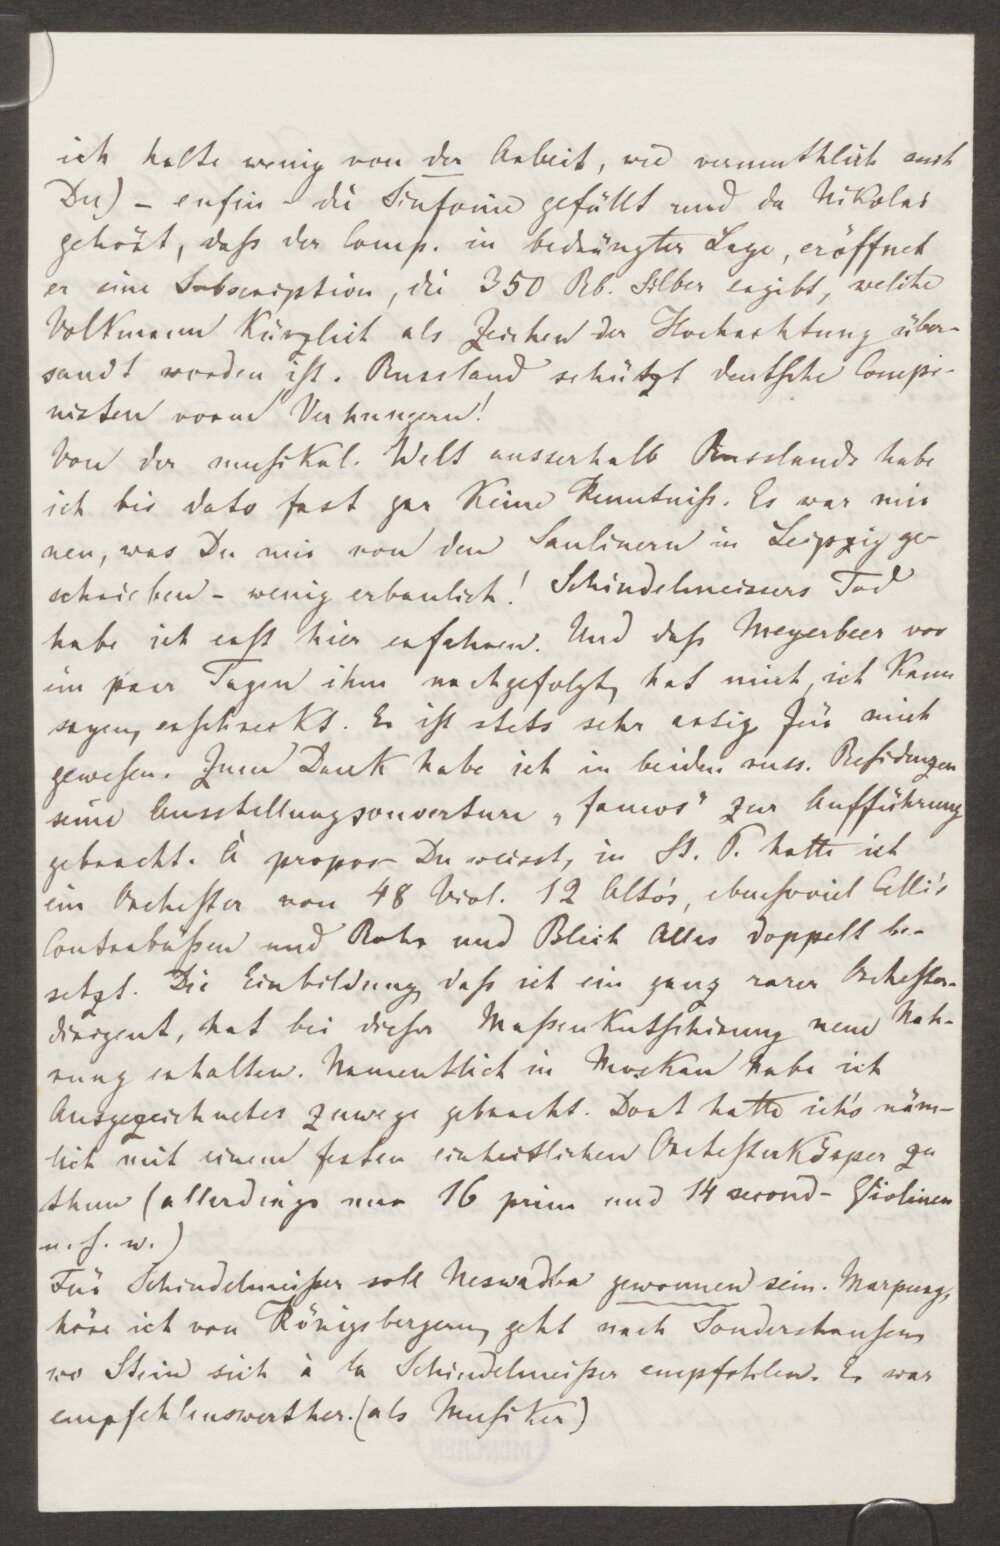 ich halte wenig von der Arbeit, wie vermuthlich auch
Du) – enfin – die Sinfonie gefällt und da Nikolai
gehört, daß der Comp. in bedrängter Lage, eröffnet
er eine Subscription, die 350 Rb. Silber ergibt, welche
Volkmann kürzlich als Zeichen der Hochachtung über-
sandt worden ist. Russland schützt deutsche Compo-
nisten vorm Verhungern!
Von der musikal. Welt ausserhalb Russlands habe
ich bis dato fast gar keine Kenntniß. Es war mir
neu, was Du mir von den Paulinern in Leipzig ge-
schrieben – wenig erbaulich! Schindelmeissers Tod
habe ich erst hier erfahren. Und daß Meyerbeer vor
ein paar Tagen ihm nachgefolgt, hat mich, ich kann
sagen, erschreckt. Er ist stets sehr artig für mich
gewesen. Zum Dank habe ich in beiden russ. Residenzen
seine Ausstellungsouverture „famos" zur Aufführung
gebracht. À propos – Du weisst, in St. P. hatte ich
ein Orchester von 48 Viol. 12 Alto's, ebensoviel Celli's
Contrabäßen und Rohr und Blech Alles doppelt be-
setzt. Die Einbildung, daß ich ein ganz rarer Orchester-
dirigent, hat bei dieser Maßenkutschirung neue Nah-
rung erhalten. Namentlich in Moskau habe ich
Ausgezeichnetes zuwege gebracht. Dort hatte ich's näm-
lich mit einem festen einheitlichen Orchesterkörper zu
thun (allerdings nur 16 prim und 14 second – Violinen
u. s. w.)
Für Schindelmeißer soll Neswadba gewonnen sein. Marpurg,
höre ich von Königsbergern, geht nach Sondershausen,
wo Stein sich à la Schindelmeißer empfohlen. Er war
empfehlenswerther. (als Musiker)